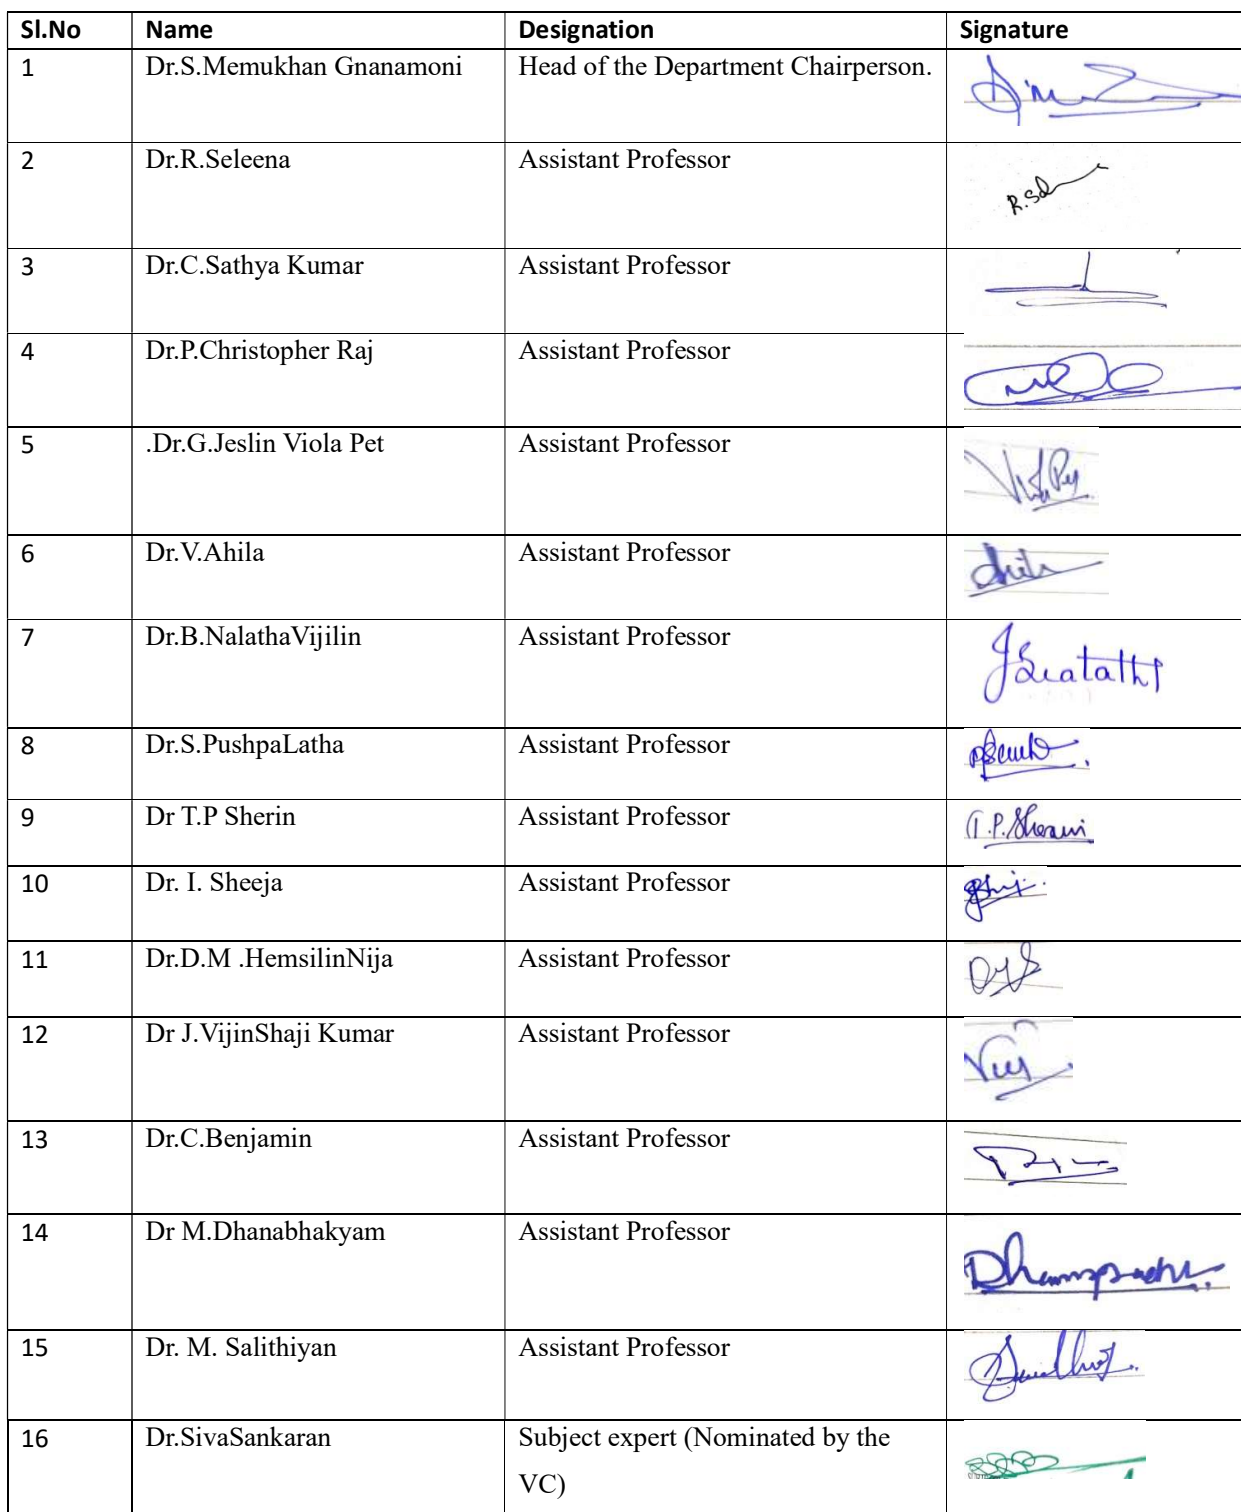 Sl.No Name Designation Signature
1 Dr.S.Memukhan Gnanamoni Head of the Department Chairperson.
2 Dr.R.Seleena Assistant Professor
3 Dr.C.Sathya Kumar Assistant Professor
4 Dr.P.Christopher Raj Assistant Professor
5 .Dr.G.Jeslin Viola Pet Assistant Professor
6 Dr.V.Ahila Assistant Professor
7 Dr.B.NalathaVijilin Assistant Professor
8 Dr.S.PushpaLatha Assistant Professor
9 Dr T.P Sherin Assistant Professor T.P.Sherin
10 Dr. I. Sheeja Assistant Professor
11 Dr.D.M .HemsilinNija Assistant Professor
12 Dr J.VijinShaji Kumar Assistant Professor
13 Dr.C.Benjamin Assistant Professor
14 Dr M.Dhanabhakyam Assistant Professor
15 Dr. M. Salithiyan Assistant Professor
16 Dr.SivaSankaran Subject expert (Nominated by the
VC)